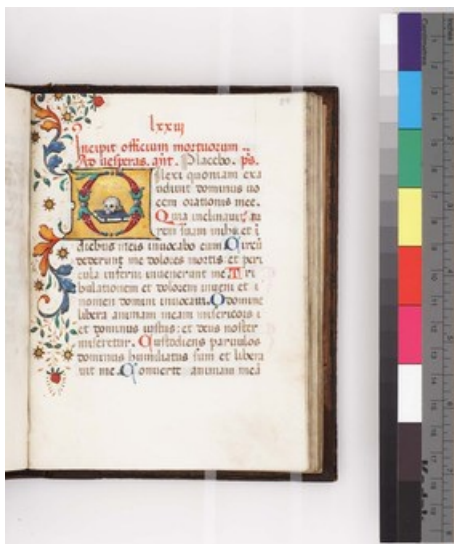 lxxiij
Incipit officium mortuorum.
Ad uesperas. añt. Placebo. ps.
ilexi quoniam exa
udiuit dominus uo
cem orationis mee.
Quia inclinauit au
rem suam mihi et ĩ
diebus meis inuocabo eum Circũ
dederunt me dolores mortis et peri
cula inferni inuenerunt me Tri
bulationem et dolorem inueni et
nomen domini inuocaui. O domine
libera animam meam misericors
et dominus iustus et deus noster
miseretur. Custodiens paruulos
dominus humiliatus sum et libera
uit me. Conuerte animam meã